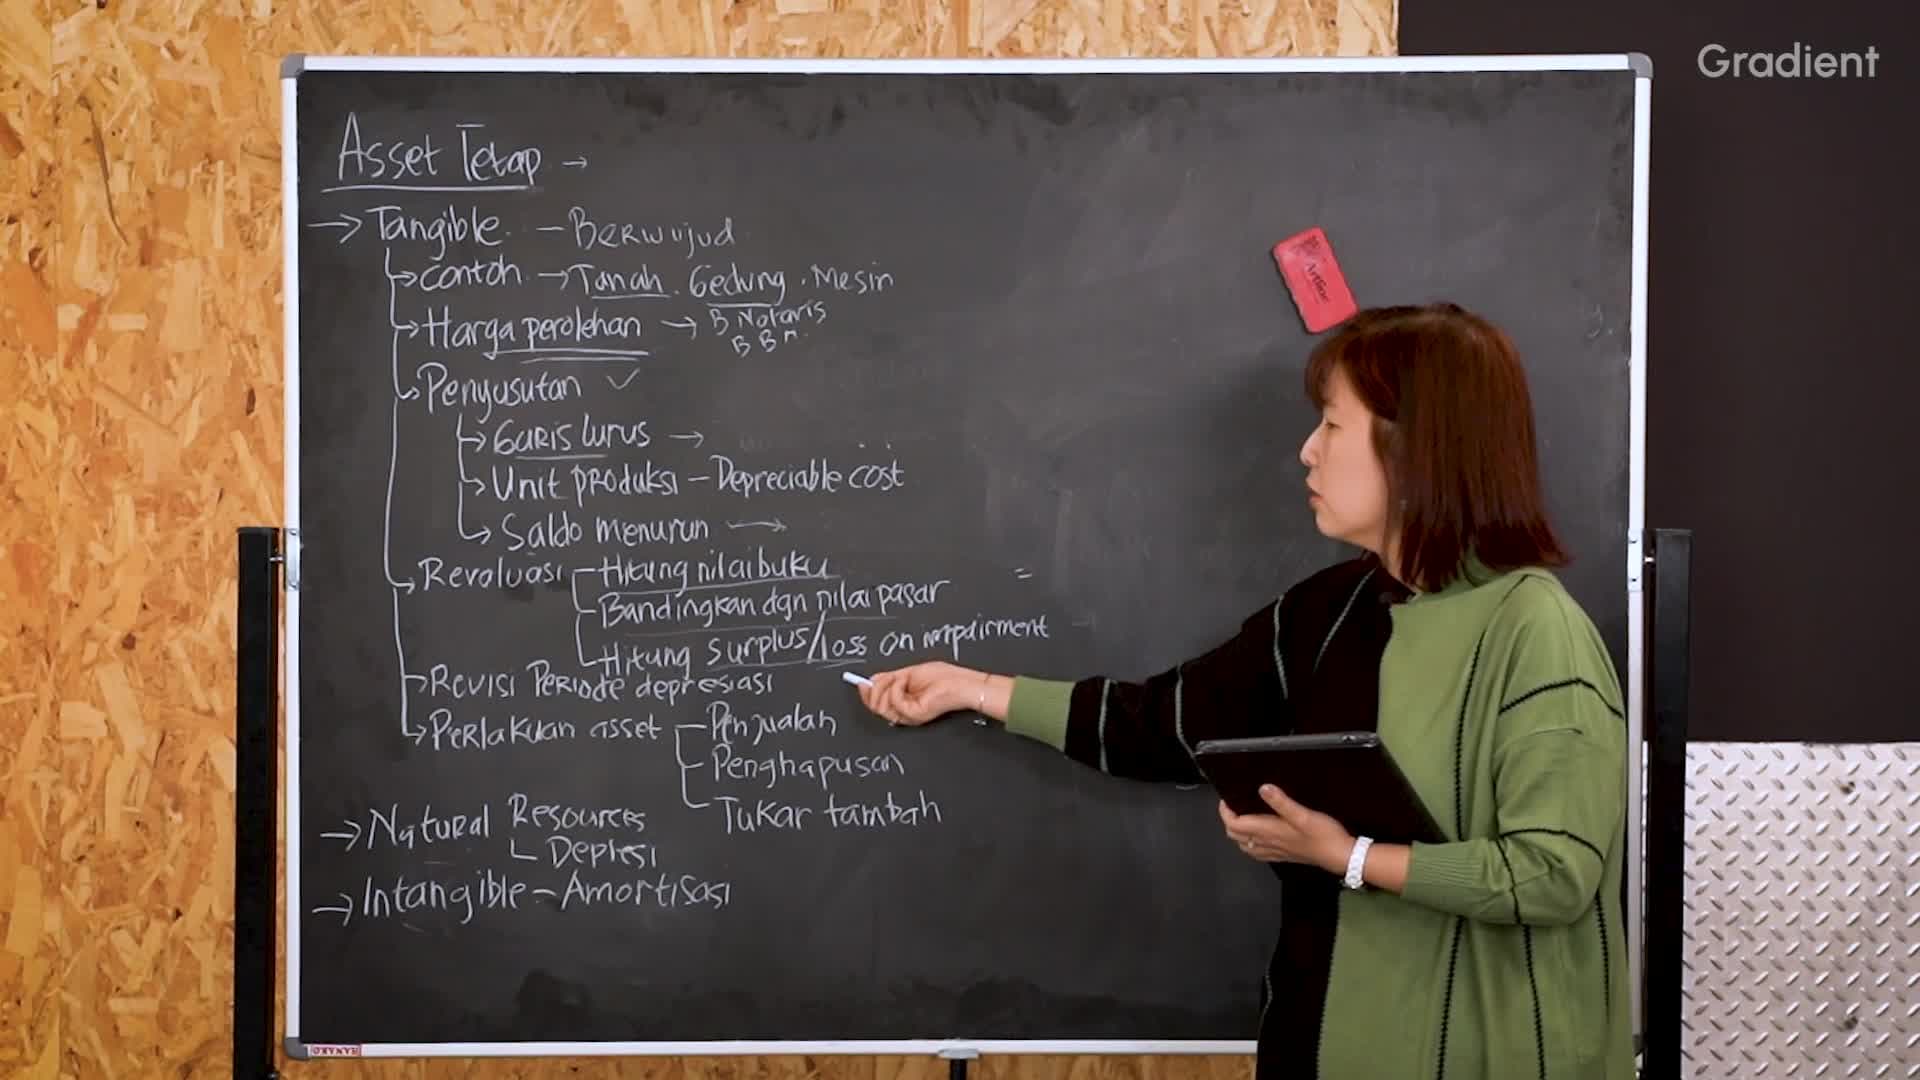 Gradient
Asset Tetap →
→ Tangible - Berwujud
→ contoh → Tanah. Gedung. Mesin
→ Harga perolehan → B. Notaris
B B n.
→ Penyusutan ✓
→ Garis lurus →
→ Unit produksi - Depreciable cost
→ Saldo menurun →
→ Revaluasi - Hitung nilai buku
- Bandingkan dgn nilai pasar =
- Hitung surplus/loss on impairment
→ Revisi Periode depresiasi
→ Perlakuan asset - Penjualan
- Penghapusan
- Tukar tambah
→ Natural Resources
Deplesi
→ Intangible - Amortisasi
Artline
HANAKO